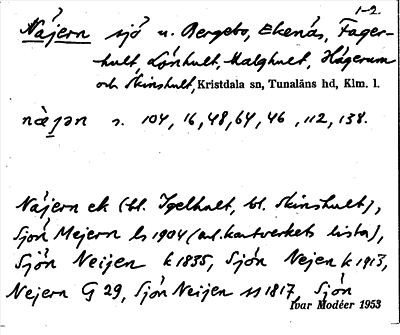 1-2.
Näjern sjö u. Bergebo, Ekenäs, Fager-
hult, Lönhult, Malghult, Hägerum
och Skinshult, Kristdala sn, Tunaläns hd, Klm. l.
s. 104, 16, 48, 64, 46, 112, 138.
Näjern ek (bl. Igelhult, bl. Skinshult),
Sjön Mejern ls 1904 (enl. kartverkets lista),
Sjön Neijen k 1835, Sjön Nejen k 1913,
Nejern G 29, Sjön Neijen 1817, Sjön
Ivar Modéer 1953